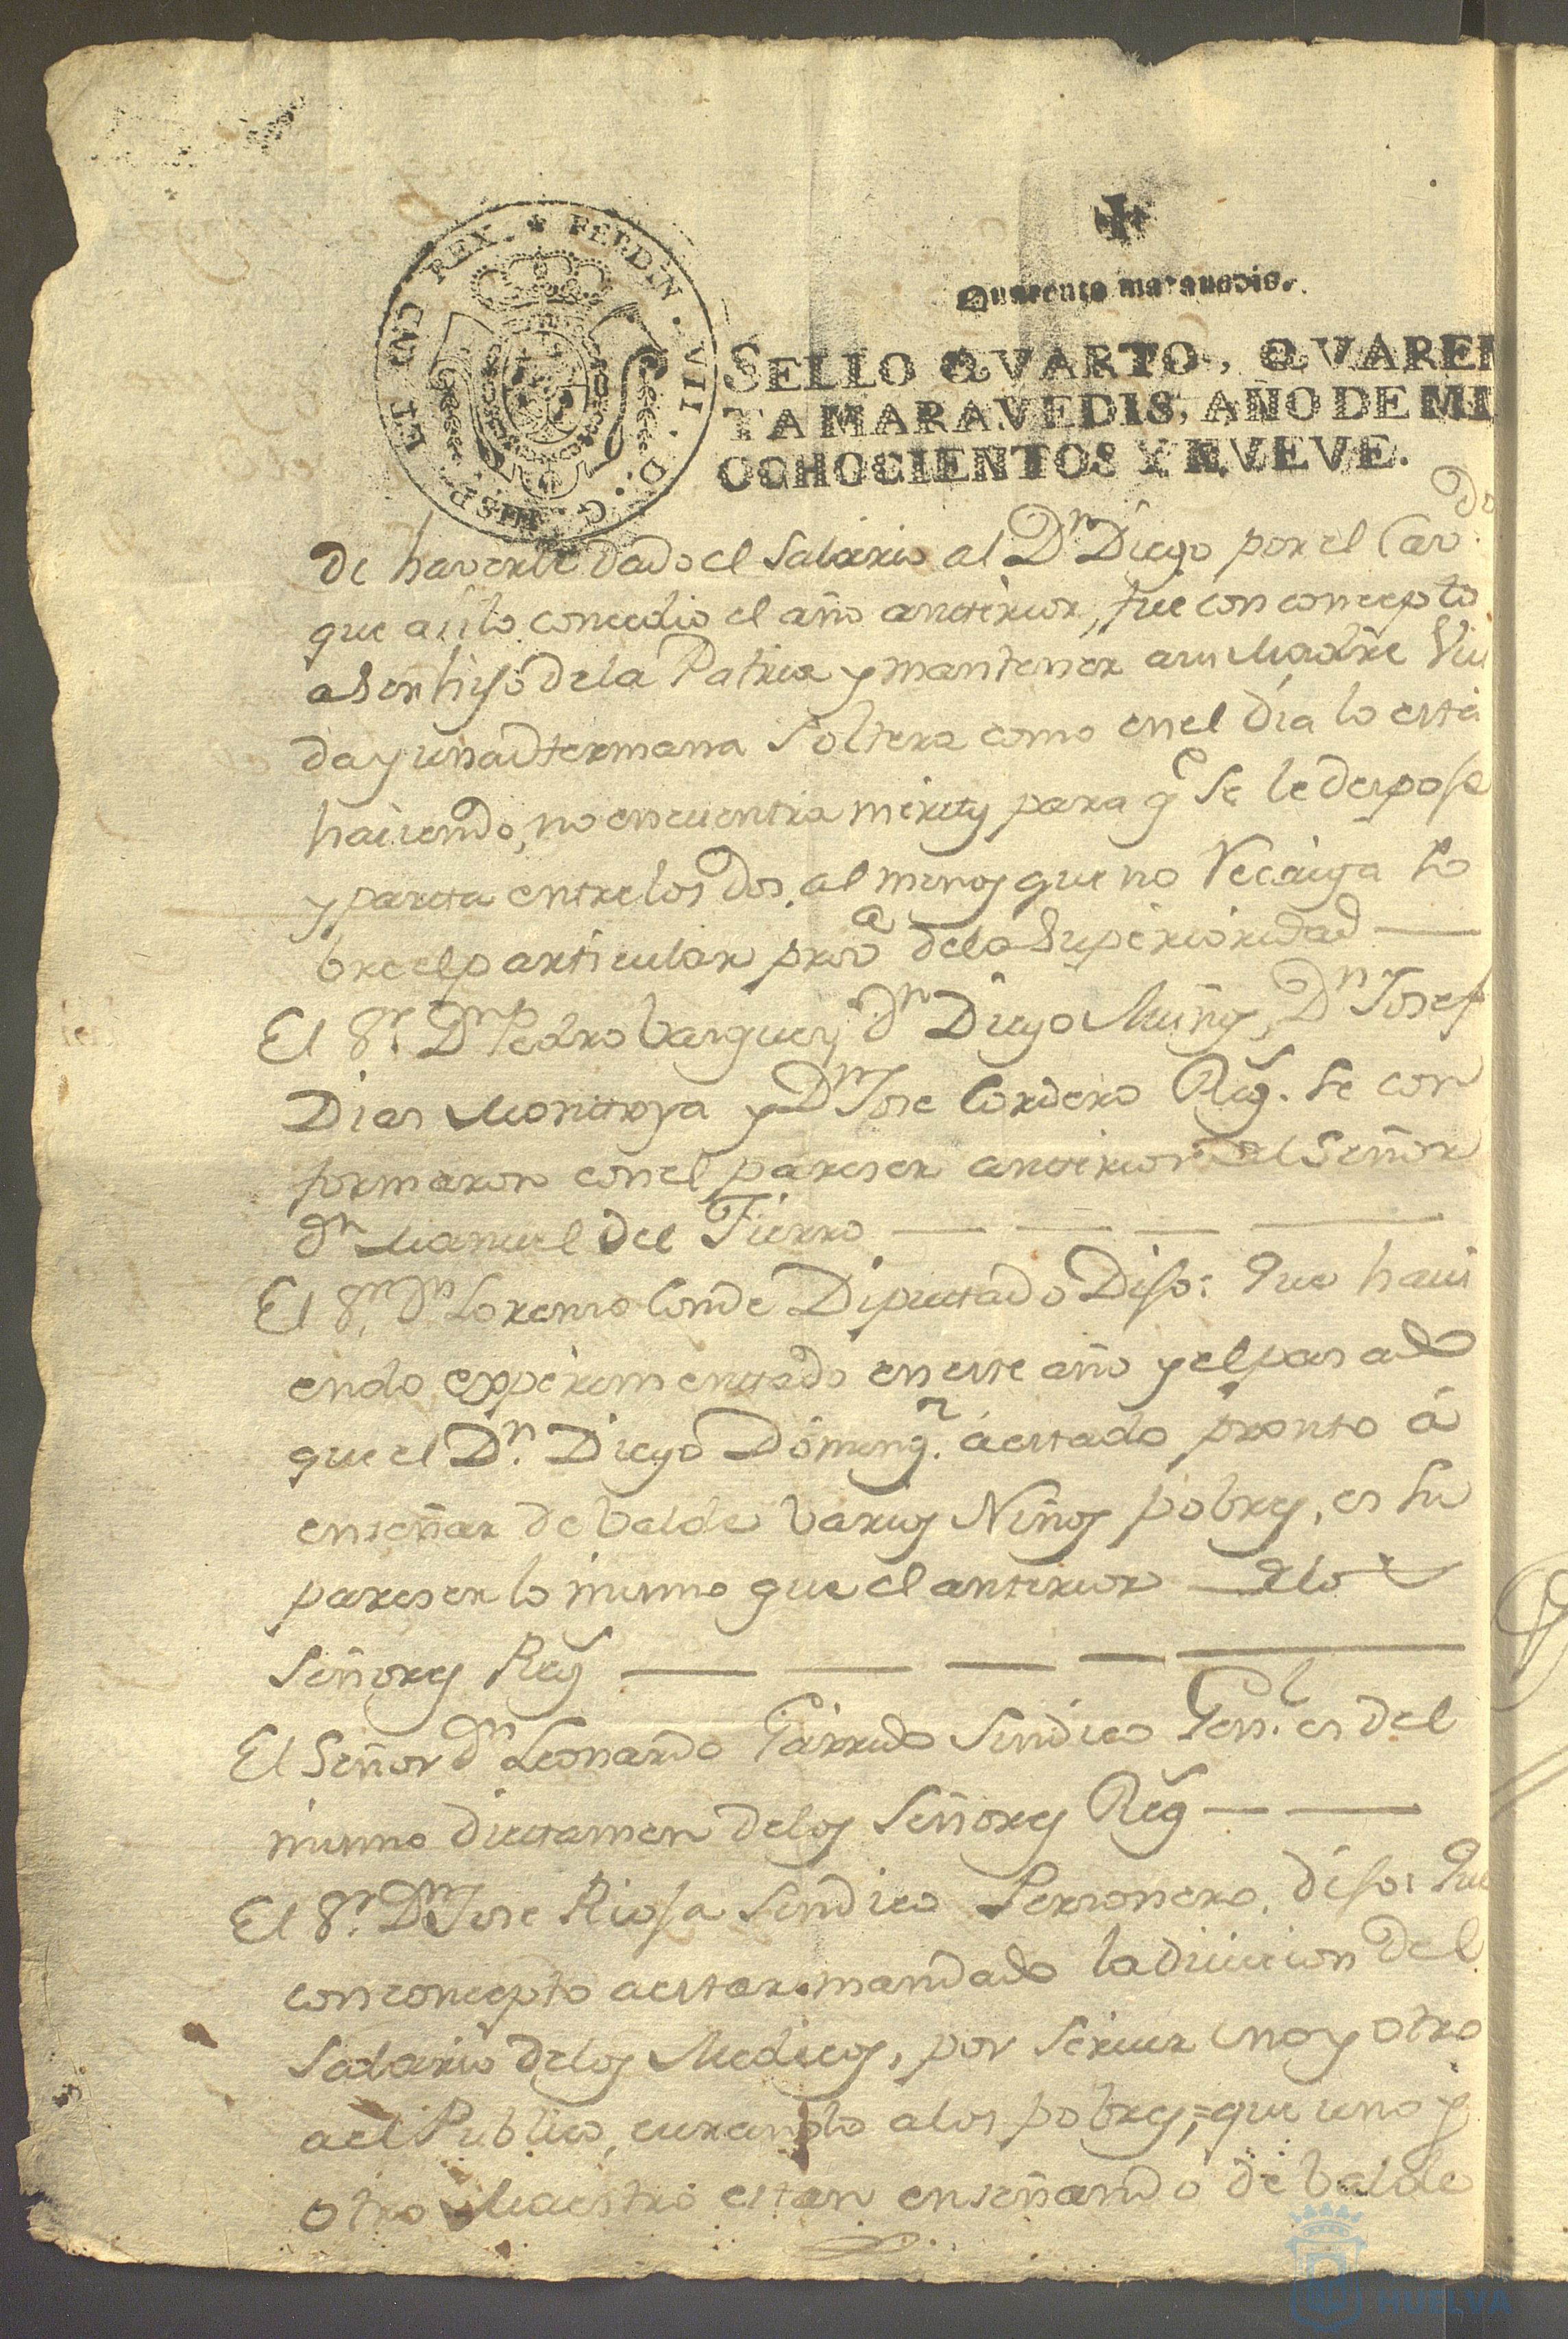 FERDIN. VII. D. G. HISP. ET IND. REX.
Quarenta maravedis.
SELLO QVARTO, QVAREN
TA MARAVEDIS, AÑO DE MI
OCHOCIENTOS Y NVEVE.
de haverle dado el Salario al Dn Diego por el Cavdo
que asi lo concedio el año anterior, fue con concepto
a Ser hijo de la Patria y mantener a su Madre Viu
da y una Hermana Soltera como en el dia lo está
haciendo, no encuentra meritos para qe Se le desposea
y parta entre los dos, al menos que no Recaiga So
bre el particular prova de la Superioridad
El Sr. Dn Pedro Vasquez, dn Diego Muñoz, Dn Josef
Dias Montoya y Dn Jose Cordero Regs. Se con
formaron con el pareser anterior al Señor
dn Manuel del Fierro
El Sr. Dn Lorenso Conde Diputado Dijo: Que havi
endo experimentado en este año y el pasado
que el Dn. Diego Domingz. á estado pronto á
enseñar de balde varios Niños pobres, es Su
pareser lo mismo que el anterior de los
Señores Regs
El Señor dn Leonardo Garrido Sindico Genl. es del
mismo dictamen de los Señores Regs
El Sr. Dn Jose Rioja Sindico Personero, dijo: Que
con concepto a estar mandado la divicion del
Salario de los Medicos, por Servir uno y otro
a el Publico, curando a los pobres, que uno y
otro Maestro estan enseñando de balde
HUELVA